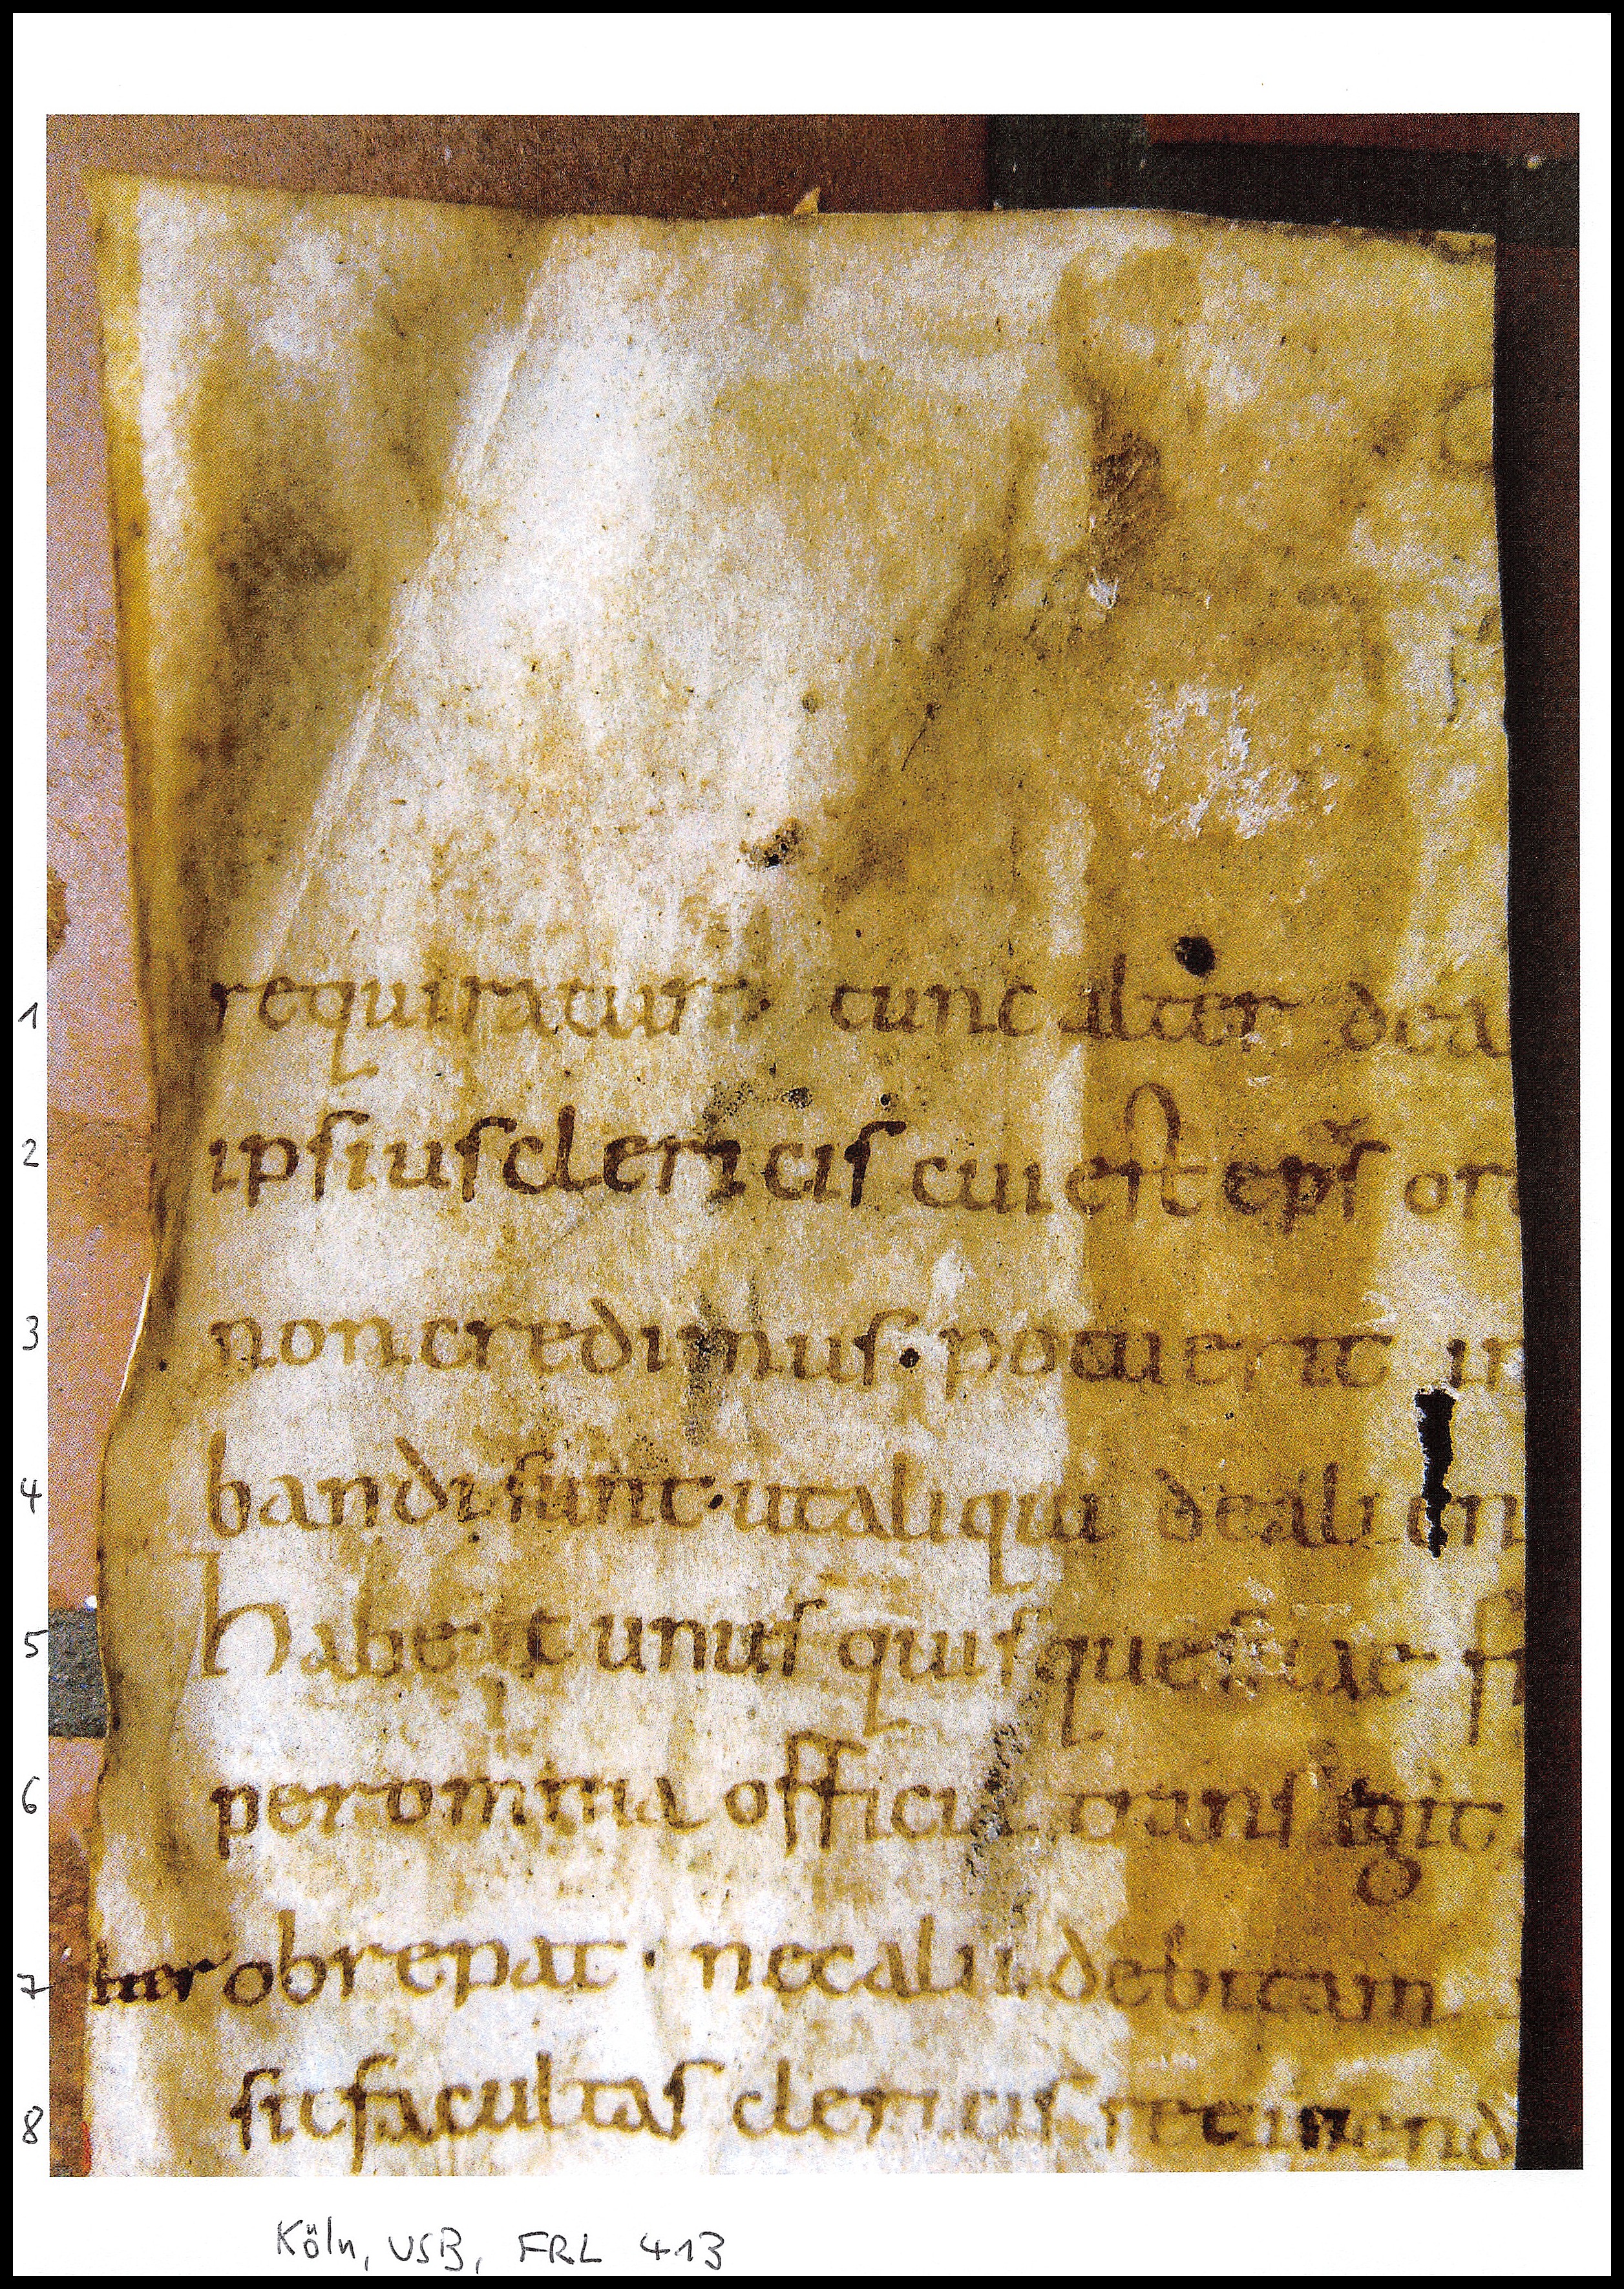 1 requiratur. tunc alter dea
2 ipsius clericis cui est eps or
3 non credimus. potuerit in
4 bandi sunt. ut aliqui de alien
5 habeat unus quisque suae fr
6 per omnia officia transigit
7 obrepat. nec alii. debitam
8 sit facultas clericis retinend
Köln, USB, FRL 413